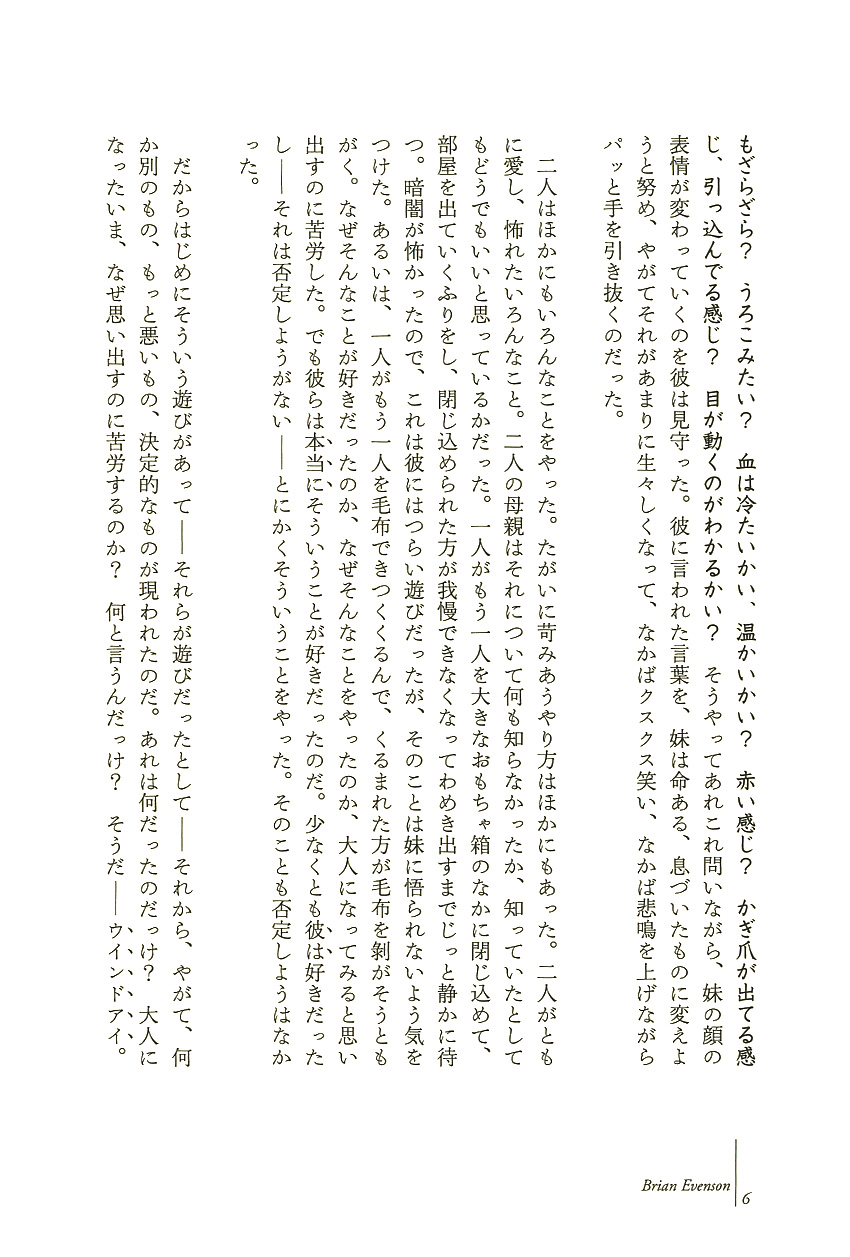 もざらざら？　うろこみたい？　血は冷たいかい、温かいかい？　赤い感じ？　かぎ爪が出てる感
じ、引っ込んでる感じ？　目が動くのがわかるかい？　そうやってあれこれ問いながら、妹の顔の
表情が変わっていくのを彼は見守った。彼に言われた言葉を、妹は命ある、息づいたものに変えよ
うと努め、やがてそれがあまりに生々しくなって、なかばクスクス笑い、なかば悲鳴を上げながら
パッと手を引き抜くのだった。
二人はほかにもいろんなことをやった。たがいに苛みあうやり方はほかにもあった。二人がとも
に愛し、怖れたいろんなこと。二人の母親はそれについて何も知らなかったか、知っていたとして
もどうでもいいと思っているかだった。一人がもう一人を大きなおもちゃ箱のなかに閉じ込めて、
部屋を出ていくふりをし、閉じ込められた方が我慢できなくなってわめき出すまでじっと静かに待
つ。暗闇が怖かったので、これは彼にはつらい遊びだったが、そのことは妹に悟られないよう気を
つけた。あるいは、一人がもう一人を毛布できつくくるんで、くるまれた方が毛布を剝がそうとも
がく。なぜそんなことが好きだったのか、なぜそんなことをやったのか、大人になってみると思い
出すのに苦労した。でも彼らは本当にそういうことが好きだったのだ。少なくとも彼は好きだった
し――それは否定しようがない――とにかくそういうことをやった。そのことも否定しようはなか
った。
だからはじめにそういう遊びがあって――それらが遊びだったとして――それから、やがて、何
か別のもの、もっと悪いもの、決定的なものが現われたのだ。あれは何だったのだっけ？　大人に
なったいま、なぜ思い出すのに苦労するのか？　何と言うんだっけ？　そうだ――ウインドアイ。
Brian Evenson
6